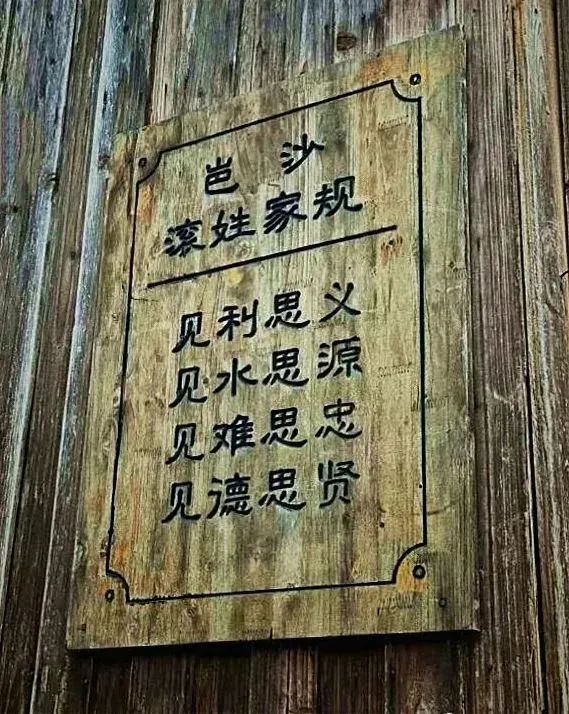 岜沙
滚姓家规
见利思义
见水思源
见难思忠
见德思贤